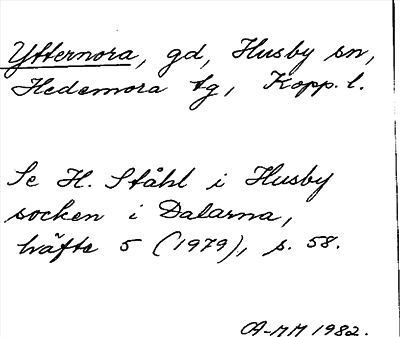 Ytternora, gd, Husby sn,
Hedemora tg, Kopp. l.
Se H. Ståhl i Husby
socken i Dalarna,
häfte 5 (1979), s. 58.
A-MM 1982.